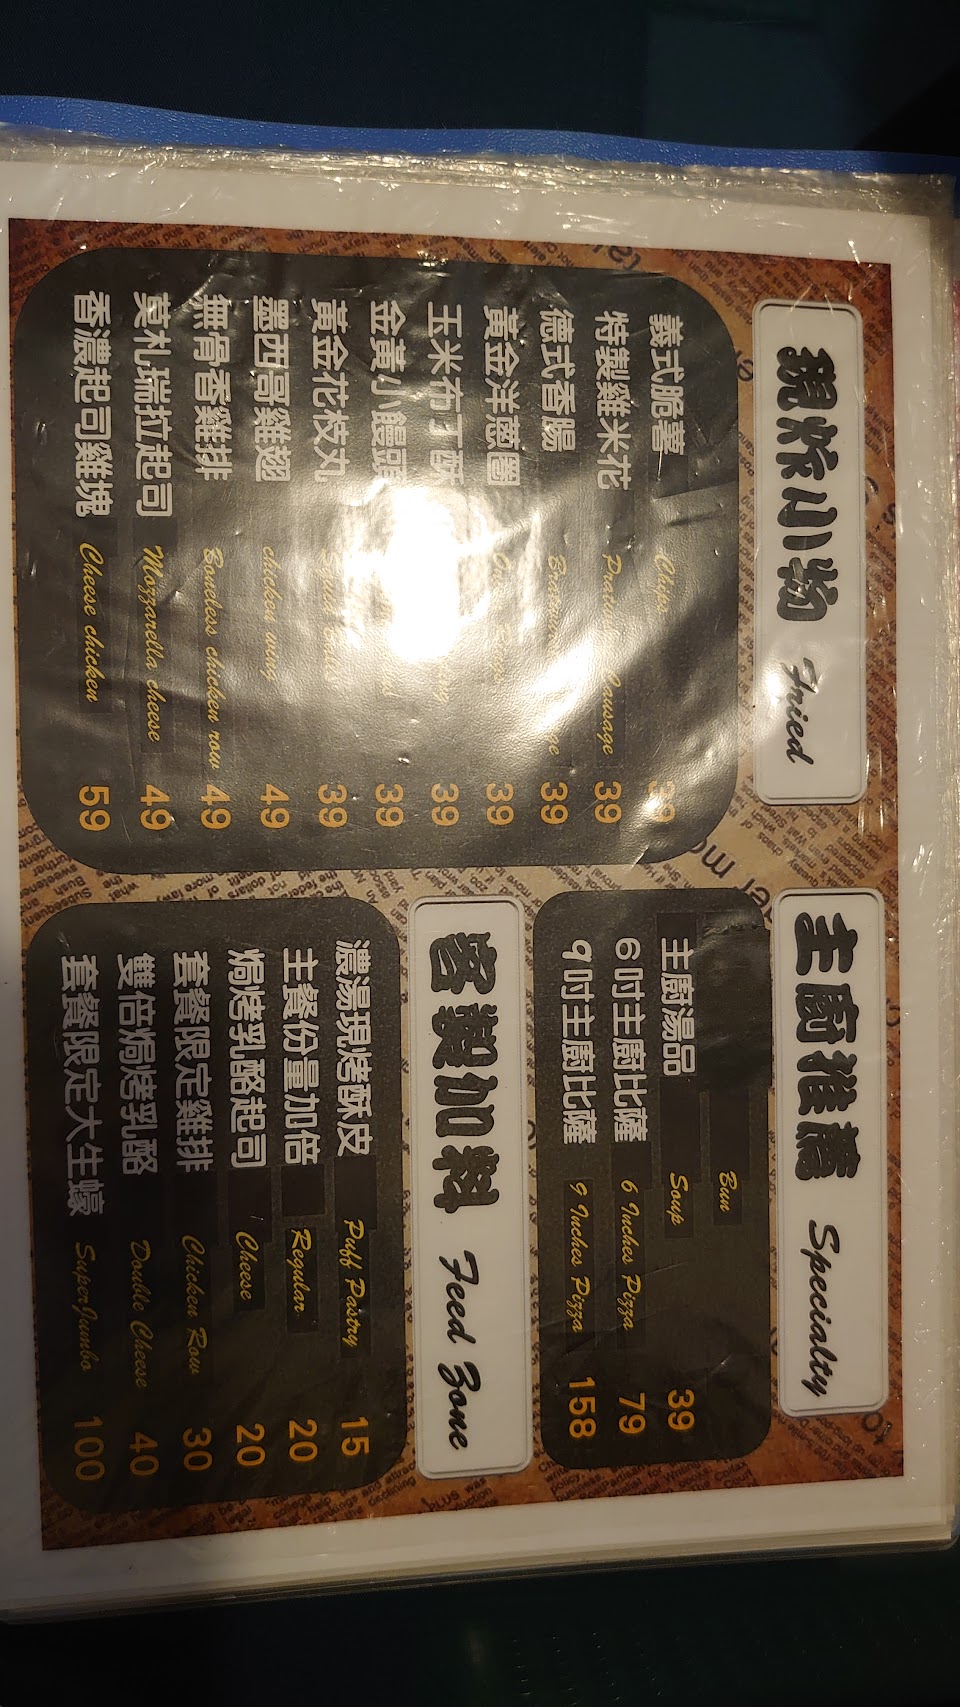 現炸小物 Fried
義式脆薯 Chips 39
特製雞米花 Sausage 39
德式香腸 39
黃金洋蔥圈 39
玉米布丁酥 39
金黃小饅頭 39
黃金花枝丸 39
墨西哥雞翅 chicken wing 49
無骨香雞排 Boneless chicken row 49
莫札瑞拉起司 Mozzarella cheese 49
香濃起司雞塊 Cheese chicken 59
主廚推薦 Specialty
Bun
主廚湯品 Soup 39
6吋主廚比薩 6 Inches Pizza 79
9吋主廚比薩 9 Inches Pizza 158
套餐加料 Feed Zone
濃湯現烤酥皮 Puff Pastry 15
主餐份量加倍 Regular 20
焗烤乳酪起司 Cheese 20
套餐限定雞排 Chicken Row 30
雙倍焗烤乳酪 Double Cheese 40
套餐限定大生蠔 Super Jumbo 100